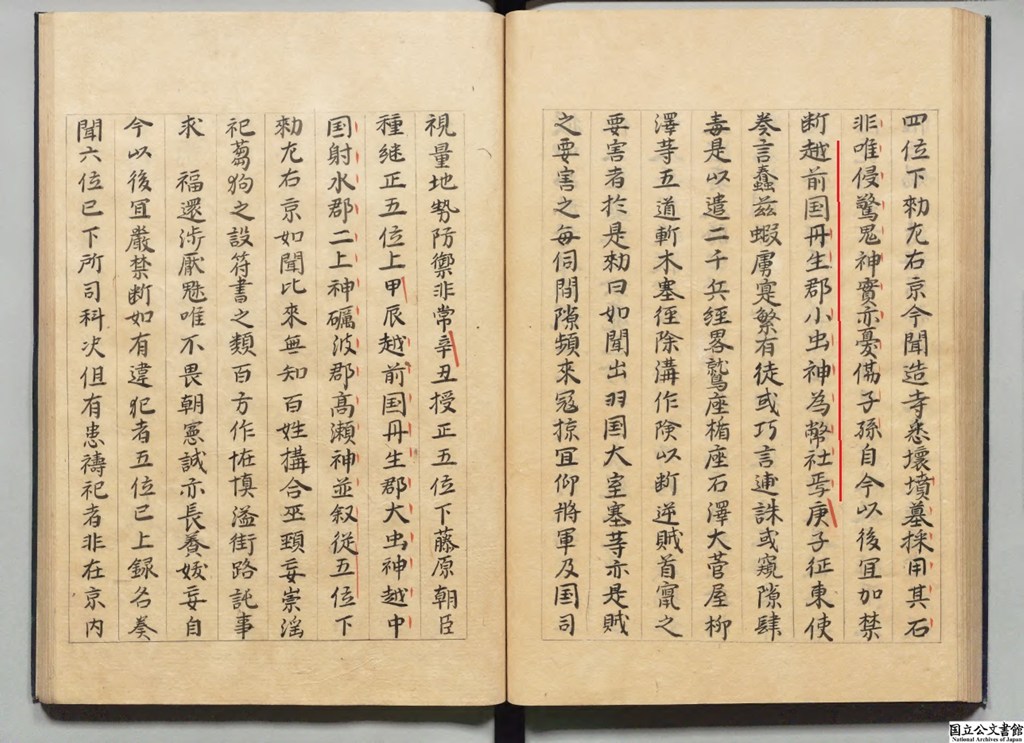 四位下勅左右京今聞造寺悉壊墳墓採用其石
非唯侵驚鬼神實亦憂傷子孫自今以後冝加禁
断越前国丹生郡小虫神為幣社焉庚子征東使
奏言蠢茲蝦虜寔繁有徒或巧言逋誅或窺隙肆
毒是以遣二千兵経畧鷲座楯座石澤大菅屋柳
澤䓁五道斬木塞径除溝作険以断逆賊首竄之
要害者於是勅曰如聞出羽国大室塞䓁亦是賊
之要害之毎伺間隙頻来冦掠冝仰将軍及国司
視量地勢防禦非常辛丑授正五位下藤原朝臣
種継正五位上甲辰越前国丹生郡大虫神越中
国射水郡二上神礪波郡髙瀬神並叙従五位下
勅左右京如聞比来無知百姓搆合巫覡妄崇淫
祀蒭狗之設符書之類百方作恠填溢街路託事
求福還渉厭魅唯不畏朝憲誠亦長養妖妄自
今以後冝厳禁断如有違犯者五位已上録名奏
聞六位已下所司科决但有患禱祀者非在京内
国立公文書館
National Archives of Japan